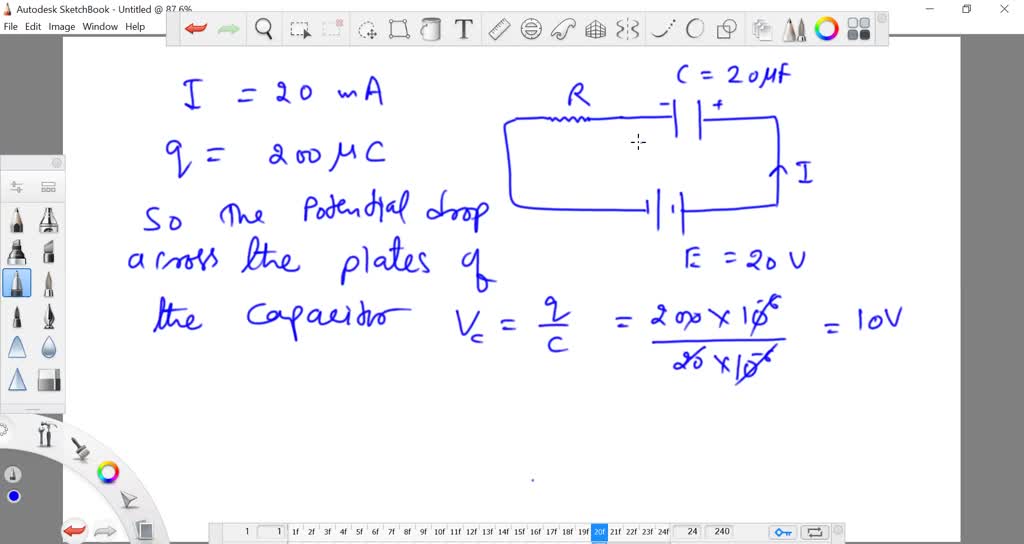 Autodesk SketchBook - Untitled @ 87.6%
File Edit Image Window Help
I = 20 mA
q = 200 μC
C = 20 μF
R
- +
I
E = 20 V
So the potential drop
across the plates of
the capacitor Vc = q/C = 200 × 10^-6 / 20 × 10^-6 = 10V
1 1 1f 2f 3f 4f 5f 6f 7f 8f 9f 10f 11f 12f 13f 14f 15f 16f 17f 18f 19f 20f 21f 22f 23f 24f 24 240